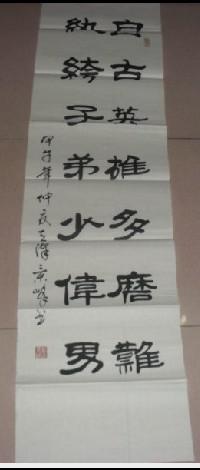 自古英雄多磨難
紈絝子弟少偉男
甲午年仲夏